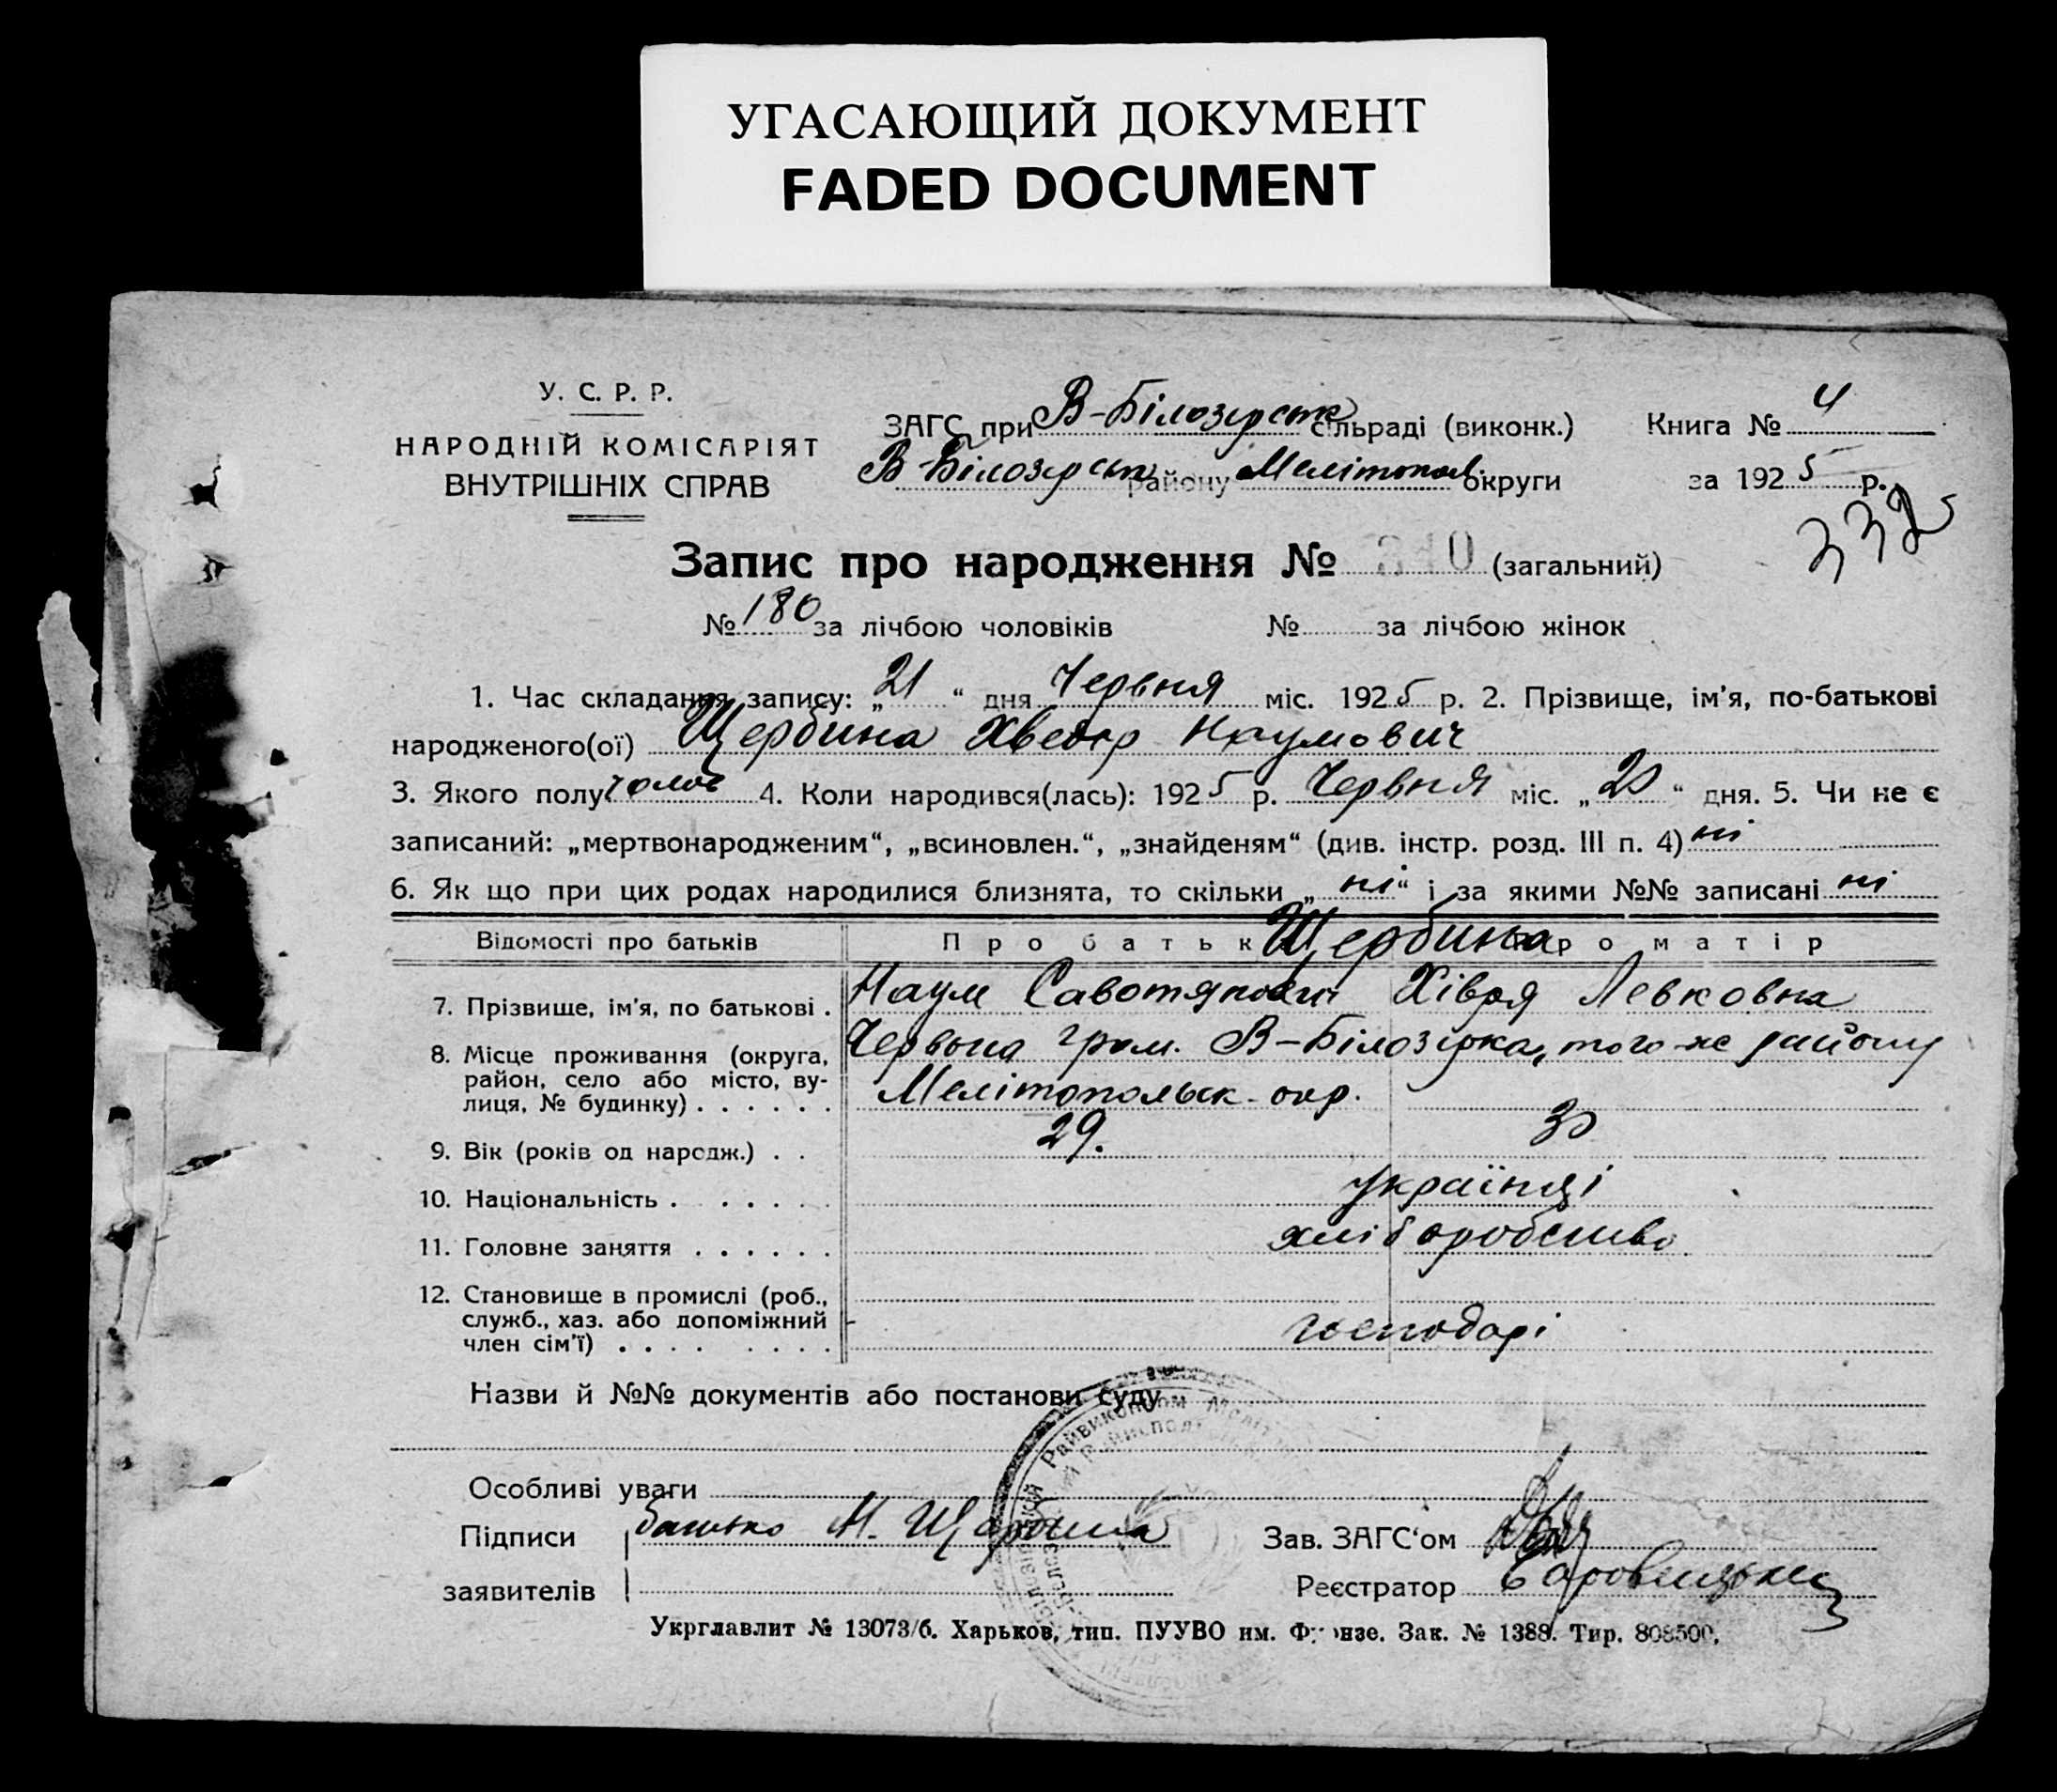 УГАСАЮЩИЙ ДОКУМЕНТ
FADED DOCUMENT
У. С. Р. Р.
НАРОДНІЙ КОМІСАРІЯТ
ВНУТРІШНІХ СПРАВ
ЗАГС при В-Білозерськ сільраді (виконк.)
В-Білозерськ району Мелітопол. округи
Книга № 4
за 1925 р.
332
Запис про народження № 340 (загальний)
№ 180 за лічбою чоловіків № за лічбою жінок
1. Час складання запису: „21“ дня Червня міс. 1925 р. 2. Прізвище, ім'я, по-батькові
народженого(ої) Щербина Хведор Наумович
3. Якого полу чолов 4. Коли народився(лась): 1925 р. Червня міс. „20“ дня. 5. Чи не є
записаний: „мертвонародженим“, „всиновлен.“, „знайденям“ (див. інстр. розд. III п. 4) ні
6. Як що при цих родах народилися близнята, то скільки „ні“ і за якими №№ записані ні
Відомості про батьків Про батька Про матір
Щербина
7. Прізвище, ім'я, по батькові . Наум Савотянович Хівря Левковна
8. Місце проживання (округа, район, село або місто, ву-лиця, № будинку) . . . . . . Червона гром. В-Білозірка, того-ж району
Мелітопольськ окр.
9. Вік (років од народж.) . . 29. 30
10. Національність . . . . . . українці
11. Головне заняття . . . . . . хліборобство
12. Становище в промислі (роб., служб., хаз. або допоміжний член сім'ї) . . . . . . . . господарі
Назви й №№ документів або постанови суду
Особливі уваги
Підписи батько Н. Щербина
заявителів
Зав. ЗАГС‘ом
Реєстратор
Укрглавлит № 13073/б. Харьков, тип. ПУУВО им. Фрунзе. Зак. № 1388. Тир. 808500.